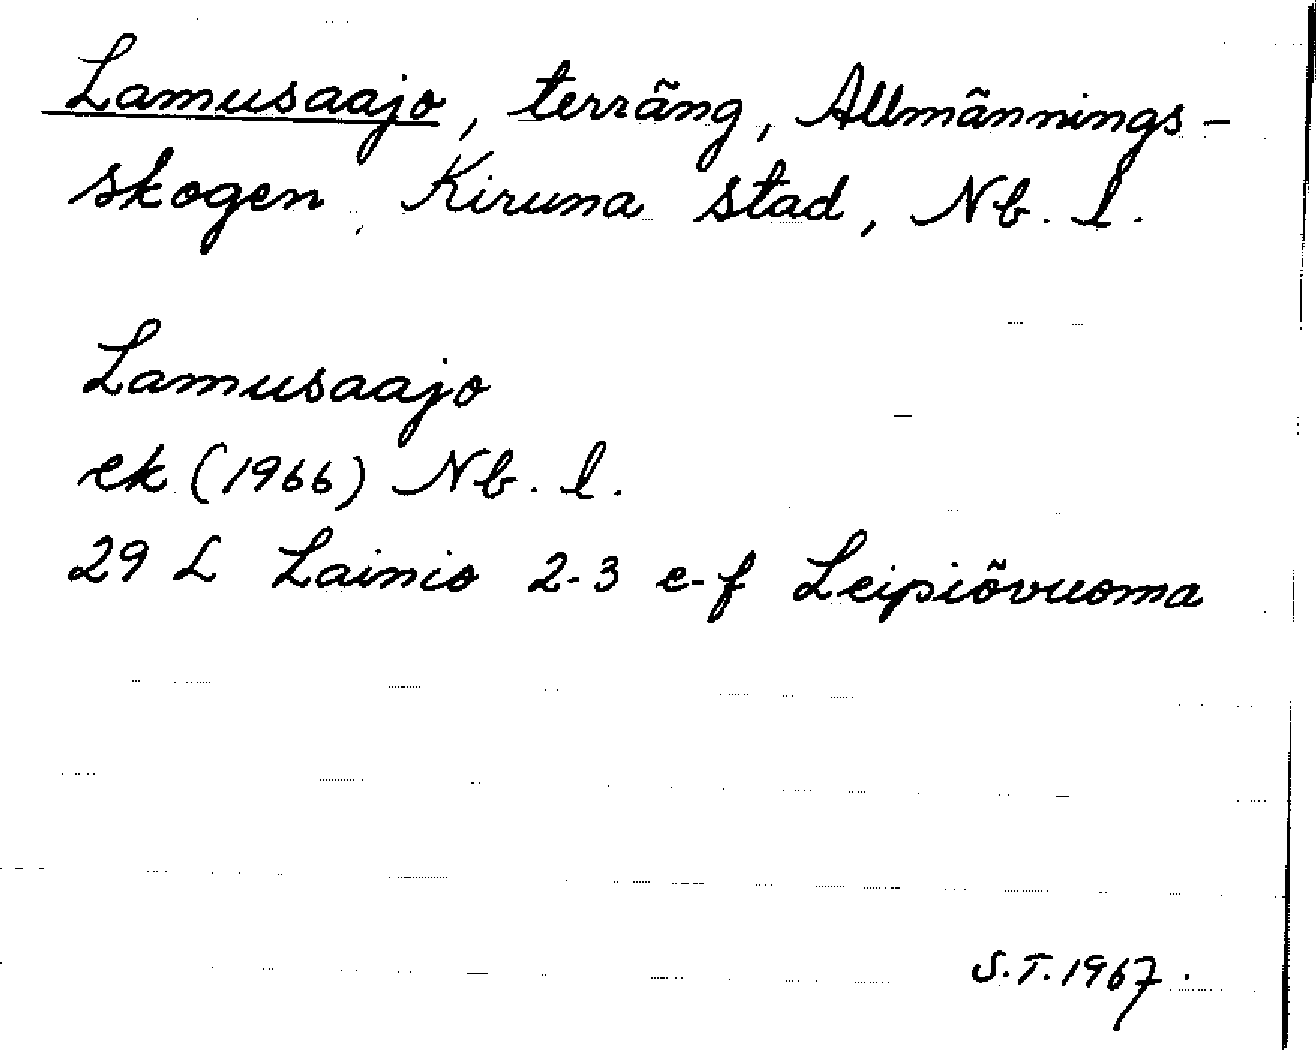 Lamusaajo, terräng, Allmännings-
skogen, Kiruna stad, Nb. l.
Lamusaajo
ek (1966) Nb. l.
29 L Lainio 2-3 e-f Leipiövuoma
S.T. 1967.